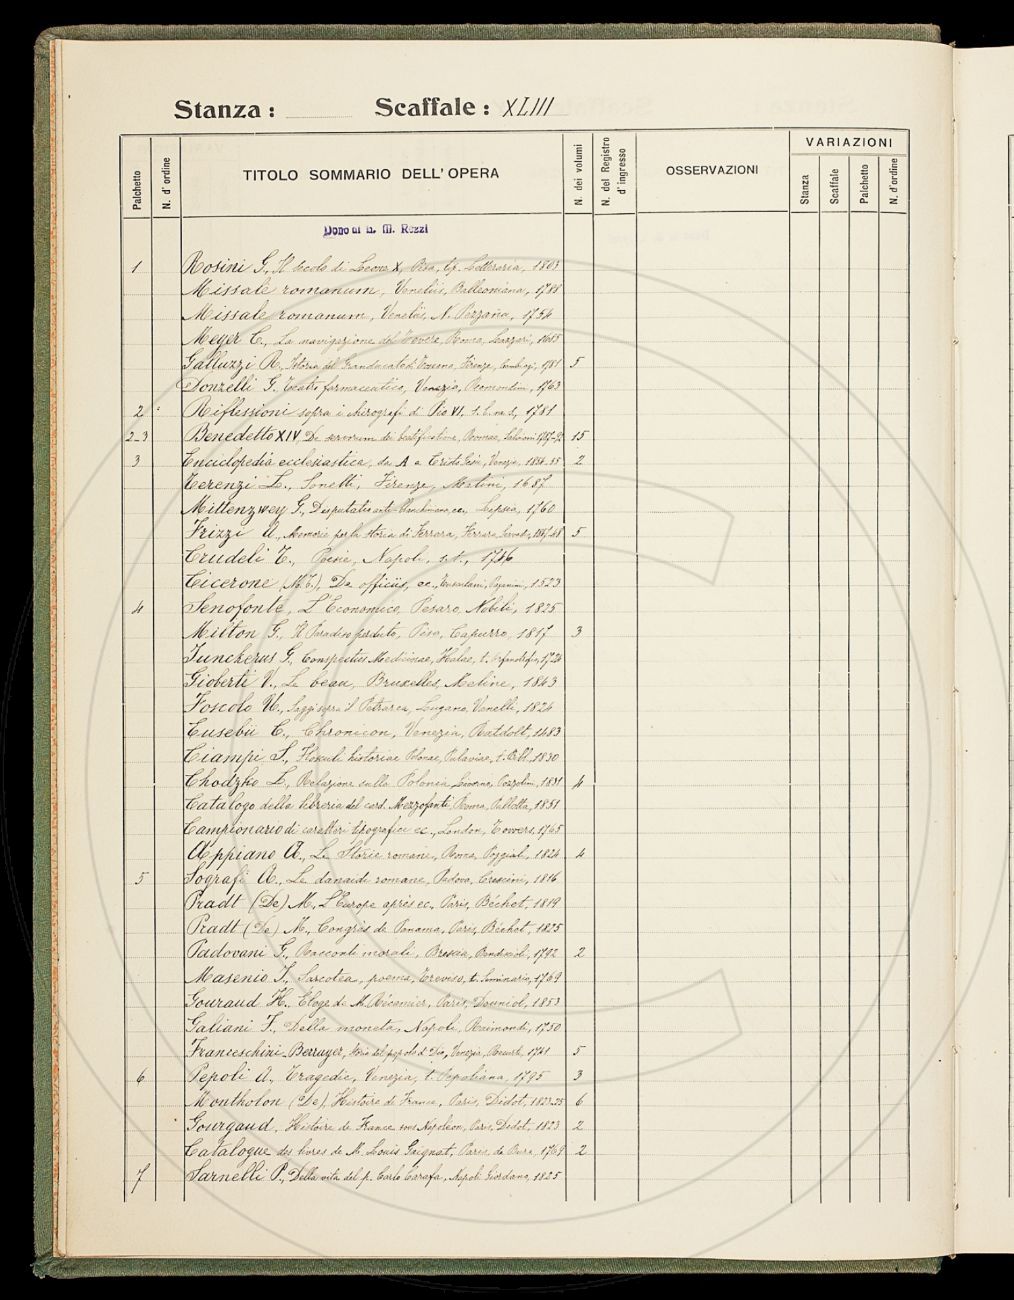 Stanza : Scaffale : XLIII
Palchetto N. d'ordine TITOLO SOMMARIO DELL'OPERA N. dei volumi N. del Registro d'ingresso OSSERVAZIONI VARIAZIONI
Stanza Scaffale Palchetto N. d'ordine
Dono di M. Rezzi
1 Rosini G., Il secolo di Leone X, Pisa, tip. Letteraria, 1803
Missale romanum, Venetiis, Balleoniana, 1788
Missale romanum, Venetiis, N. Pezzana, 1754
Meyer C., La navigazione del Tevere, Roma, Lazzari, 1685
Galluzzi R., Istoria del Granducato di Toscana, Firenze, Cambiagi, 1781 5
Donzelli G. Teatro farmaceutico, Venezia, Remondini, 1763
2 Riflessioni sopra i chirografi di Pio VI, s. l. ne s., 1781
2-3 Benedetto XIV, De servorum dei beatificatione, Romae, Salvioni 15
3 Enciclopedia ecclesiastica, da A a Cristo Gesù, Venezia, 1854-55 2
Terenzi L., Sonetti, Firenze, Matini, 1687
Mittenzwey G., Disputatio ec., Lipsia, 1760
Frizzi A., Memorie per la storia di Ferrara, Ferrara, 1847-48 5
Crudeli T., Poesie, Napoli, s.t., 1746
Cicerone (M.T.), De officiis, ec., Paganini, 1523
4 Senofonte, L'Economico, Pesaro, Nobili, 1825
Milton G., Il Paradiso perduto, Pisa, Capurro, 1817 3
Junckerus G., Conspectus Medicinae, Halae, t. Orfanotrofio, 1724
Gioberti V., Le beau, Bruxelles, Meline, 1843
Foscolo U., Saggi sopra il Petrarca, Lugano, Vanelli, 1824
Eusebii C., Chronicon, Venezia, Ratdolt, 1483
Ciampi S., Flosculi historiae Polonae, Pulaviae, t. Bibl., 1830
Chodzko L., Relazione sulla Polonia, Livorno, Pozzolini, 1831 4
Catalogo della libreria del card. Mezzofanti, Roma, Pallotta, 1851
Campionario di caratteri tipografici ec., London, Towers, 1765
Appiano A., Le Storie romane, Roma, Poggioli, 1824 4
5 Sografi A., Le danaidi romane, Padova, Crescini, 1816
Pradt (De) M., L'Europe après ec., Paris, Béchet, 1819
Pradt (De) M., Congrès de Panama, Paris, Béchet, 1825
Padovani G., Racconti morali, Brescia, 1792 2
Masenio J., Sarcotea, poema, Treviso, t. Seminario, 1769
Gouraud H., Eloge de M. Récamier, Paris, Douniol, 1853
Galiani F., Della moneta, Napoli, Raimondi, 1750
Franceschini-Berruyer, Storia del popolo di Dio, Venezia, Recurti, 1741 5
6 Pepoli A., Tragedie, Venezia, t. Pepoliana, 1795 3
Montholon (De), Histoire de France, Paris, Didot, 1823-25 6
Gourgaud, Histoire de France sous Napoléon, Paris, Didot, 1823 2
Catalogue des livres de M. Louis Gaignat, Paris, de Bure, 1769 2
7 Sarnelli P., Della vita del p. Carlo Carafa, Napoli, Giordano, 1825